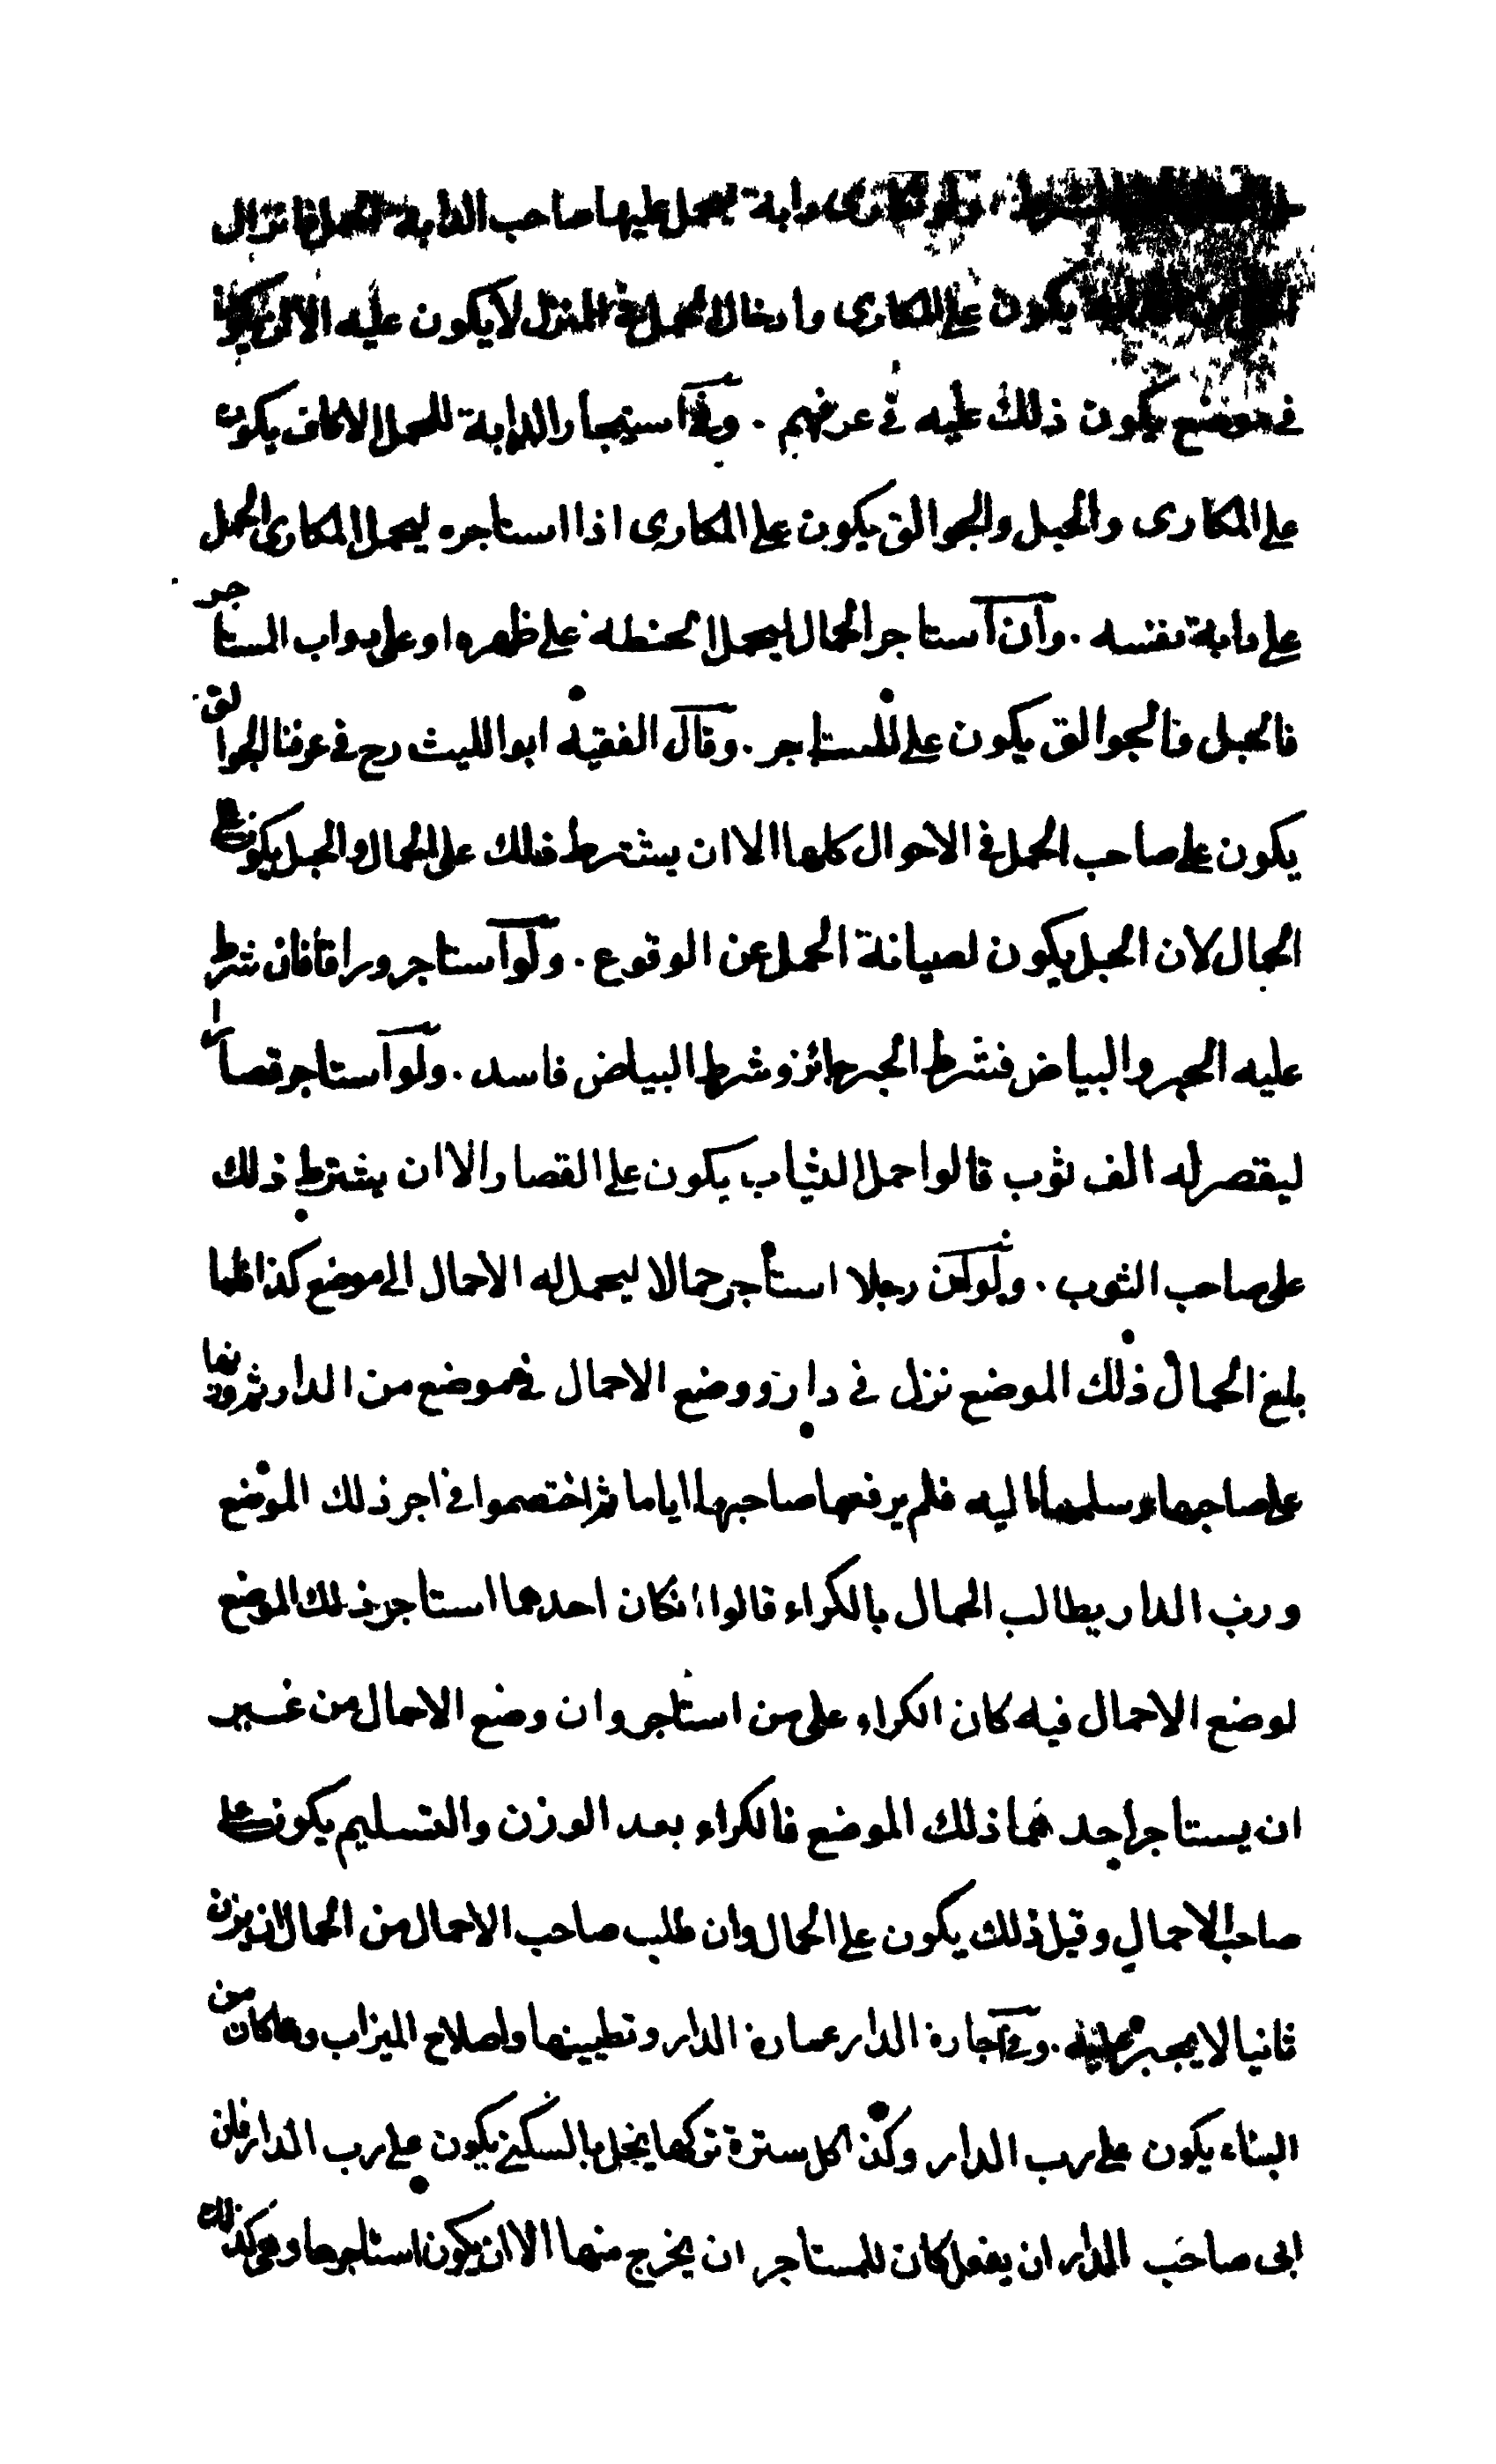 ولو تكارى دابة ليحمل عليها صاحب الدابة الحمل فانزال
يكون على المكارى وادخال الحمل فى المنزل لا يكون عليه الا ان يكون
فى موضع يكون ذلك عليه فى عرفهم . وفى استيجار الدابة للحمل الاكاف يكون
على المكارى والحبل والجوالق يكون على المكارى اذا استاجره ليحمل المكارى الحمل
على دابة نفسه . وان استاجر الحمال ليحمل الحنطة على ظهره او على دواب المستاجر
فالحبل فالجوالق يكون على المستاجر . وقال الفقيه ابو الليث رح فى عرفنا الجوالق
يكون على صاحب الحمل فى الاحوال كلها الا ان يشترط ذلك على الحمال والحبل يكون على
الحمال لان الحبل يكون لصيانة الحمل عن الوقوع . ولو استاجر وراقا فان شرط
عليه الحبر والبياض فشرط الحبر جائز وشرط البياض فاسد . ولو استاجر قصارا
ليقصر له الف ثوب قالوا حمل الثياب يكون على القصار الا ان يشترط ذلك
على صاحب الثوب . ولو كن رجلا استأجر حمالا ليحمل له الاحمال الى موضع كذا فلما
بلغ الحمال ذلك الموضع نزل فى دار ووضع الاحمال فى موضع من الدار ثم وزنها
على صاحبها وسلمها اليه فلم يرفعها صاحبها اياما ثم اختصموا فى اجر ذلك الموضع
ورب الدار يطالب الحمال بالكراء قالوا انكان احدهما استاجر ذلك الموضع
لوضع الاحمال فيه كان الكراء على من استاجر وان وضع الاحمال من غير
ان يستاجر احد هما ذلك الموضع فالكراء بعد الوزن والتسليم يكون على
صاحب الاحمال وقبل ذلك يكون على الحمال وان طلب صاحب الاحمال من الحمال ان يزن
ثانيا لا يجبر عليه . وفى اجارة الدار عمارة الدار وتطيينها واصلاح الميزاب وما كان من
البناء يكون على رب الدار وكذا كل سترة تركها يخل بالسكنى يكون على رب الدار فان
ابى صاحب الدار ان يفعل كان للمستاجر ان يخرج منها الا ان يكون استاجرها وهى كذلك